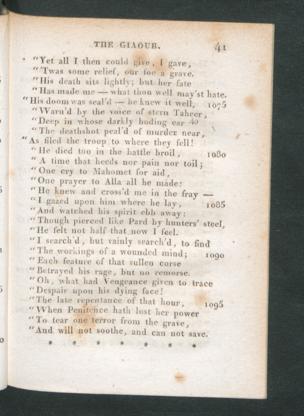 THE GIAOUR. 41
"Yet all I then could give, I gave,
"'Twas some relief, our foe a grave.
"His death sits lightly; but her fate
"Has made me — what thou well may'st hate.
"His doom was seal'd — he knew it well, 1075
"Warn'd by the voice of stern Taheer,
"Deep in whose darkly boding ear 40
"The deathshot peal'd of murder near,
"As filed the troop to where they fell!
"He died too in the battle broil, 1080
"A time that heeds nor pain nor toil;
"One cry to Mahomet for aid,
"One prayer to Alla all he made:
"He knew and cross'd me in the fray —
"I gazed upon him where he lay, 1085
"And watched his spirit ebb away:
"Though pierced like Pard by hunters' steel,
"He felt not half that now I feel.
"I search'd, but vainly search'd, to find
"The workings of a wounded mind; 1090
"Each feature of that sullen corse
"Betrayed his rage, but no remorse.
"Oh, what had Vengeance given to trace
"Despair upon his dying face!
"The late repentance of that hour, 1095
"When Penitence hath lost her power
"To tear one terror from the grave,
"And will not soothe, and can not save.
* * * * * * * *